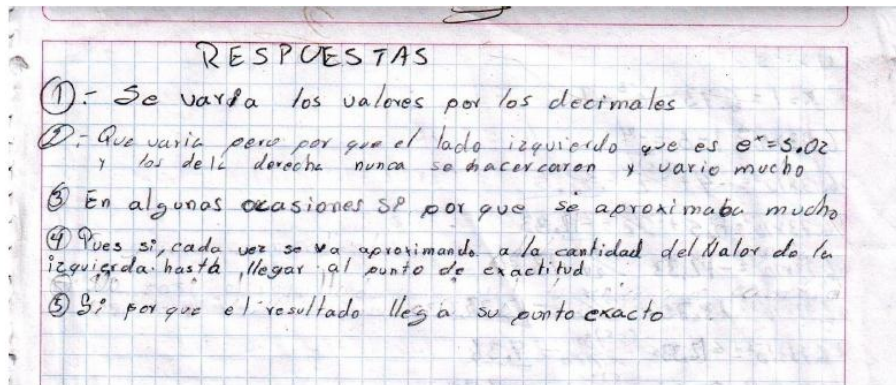 RESPUESTAS
①- Se varía los valores por los decimales
②- Que varia pero por que el lado izquierdo que es e^x=5.02
y los dela derecha nunca se hacercaron y vario mucho
③ En algunas ocasiones Si por que se aproximaba mucho
④ Pues si, cada vez se va aproximando a la cantidad del Valor de la
izquierda hasta llegar al punto de exactitud
⑤ Si por que el resultado llega su punto exacto